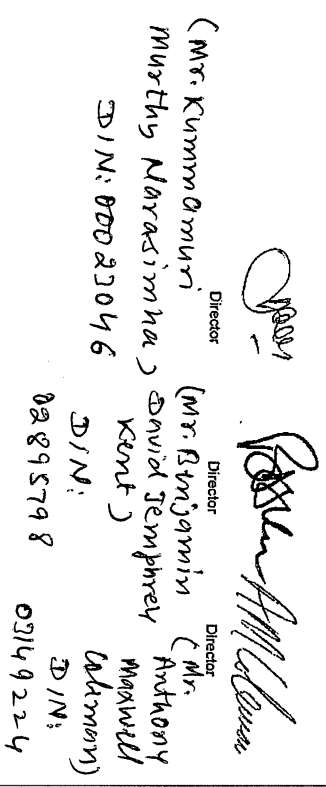 Director
(Mr. Kummamuri
Murthy Narasimha)
DIN: 00023046
Director
(Mr. Benjamin
David Jemphrey
Kent)
DIN:
02895798
Director
(Mr.
Anthony
Maxwell
Coleman)
DIN:
03149224